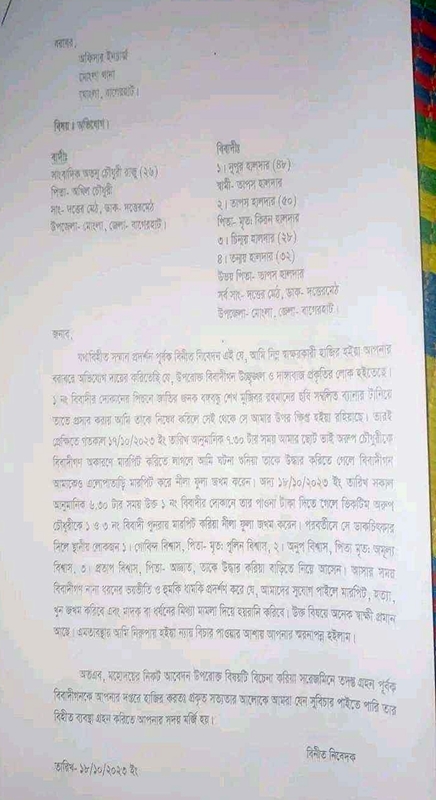 বরাবর,
অফিসার ইনচার্জ
মোংলা থানা
মোংলা, বাগেরহাট।
বিষয় : অভিযোগ।
বাদীঃ
সাংবাদিক অতনু চৌধুরী রাজু (২৬)
পিতা- অখিল চৌধুরী
সাং- দত্তের মেঠ, ডাক- দত্তেরমেঠ
উপজেলা- মোংলা, জেলা- বাগেরহাট।
বিবাদীঃ
১। নুপুর হালদার (৪৮)
স্বামী- তাপস হালদার
২। তাপস হালদার (৫০)
পিতা- মৃতঃ কিরন হালদার
৩। চিন্ময় হালদার (২৮)
৪। তন্ময় হালদার (৩২)
উভয় পিতা- তাপস হালদার
সর্ব সাং- দত্তের মেঠ, ডাক- দত্তেরমেঠ
উপজেলা- মোংলা, জেলা- বাগেরহাট।
জনাব,
যথাবিহীত সম্মান প্রদর্শন পূর্বক বিনীত নিবেদন এই যে, আমি নিম্ন স্বাক্ষরকারী হাজির হইয়া আপনার
বরাবরে অভিযোগ দায়ের করিতেছি যে, উপরোক্ত বিবাদীগন উচ্ছৃঙ্খল ও দাঙ্গাবাজ প্রকৃতির লোক হইতেছে।
১ নং বিবাদীর দোকানের পিছনে জাতির জনক বঙ্গবন্ধু শেখ মুজিবর রহমানের ছবি সম্বলিত ব্যানার টানিয়ে
তাতে প্রসাব করায় আমি তাকে নিষেধ করিলে সেই থেকে সে আমার উপর ক্ষিপ্ত হইয়া রহিয়াছে। তারই
প্রেক্ষিতে গতকাল ১৭/১০/২০২৩ ইং তারিখ আনুমানিক ৭.৩০ টার সময় আমার ছোট ভাই অরুপ চৌধুরীকে
বিবাদীগণ অকারণে মারপিট করিতে লাগলে আমি ঘটনা শুনিয়া তাকে উদ্ধার করিতে গেলে বিবাদীগন
আমাকেও এলোপাতাড়ি মারপিট করে নীলা ফুলা জখম করেন। অদ্য ১৮/১০/২০২৩ ইং তারিখ সকাল
আনুমানিক ৬.৩০ টার সময় উক্ত ১ নং বিবাদীর দোকানে তার পাওনা টাকা দিতে গেলে ভিকটিম অরুপ
চৌধুরীকে ১ ও ৩ নং বিবাদী পুনরায় মারপিট করিয়া নীলা ফুলা জখম করেন। পরবর্তীসে সে ডাকচিৎকার
দিলে স্থানীয় লোকজন ১। গোবিন্দ বিশ্বাস, পিতা- মৃতঃ পুলিন বিশ্বাস, ২। অনুপ বিশ্বাস, পিতা মৃতঃ অমূল্য
বিশ্বাস, ৩। প্রতাপ বিশ্বাস, পিতা- অজ্ঞাত, তাকে উদ্ধার করিয়া বাড়িতে নিয়ে আসেন। আসার সময়
বিবাদীগণ নানা ধরনের ভয়ভীতি ও হুমকি ধামকি প্রদর্শন করে যে, আমাদের সুযোগ পাইলে মারপিট, হত্যা,
খুন জখম করিবে এবং মাদক বা ধর্ষনের মিথ্যা মামলা দিয়ে হয়রানি করিবে। উক্ত বিষয়ে অনেক স্বাক্ষী প্রমান
আছে। এমতাবস্থায় আমি নিরুপায় হইয়া ন্যায় বিচার পাওয়ার আশায় আপনার স্মরনাপন্ন হইলাম।
অতএব, মহোদয়ের নিকট আবেদন উপরোক্ত বিষয়টি বিচেনা করিয়া সরেজমিনে তদন্ত গ্রহন পূর্বক
বিবাদীগনকে আপনার দপ্তরে হাজির করতঃ প্রকৃত সত্যতার আলোকে আমরা যেন সুবিচার পাইতে পারি তার
বিহীত ব্যবস্থা গ্রহন করিতে আপনার সদয় মর্জি হয়।
বিনীত নিবেদক
তারিখ- ১৮/১০/২০২৩ ইং